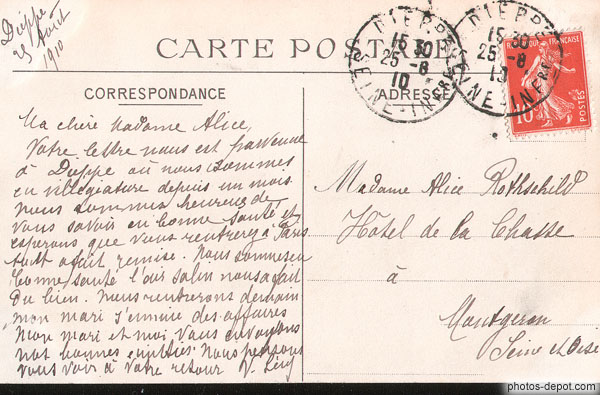 Dieppe
25 Août
1910
CARTE POSTALE
CORRESPONDANCE
ADRESSE
DIEPPE
15 30
25 -8
10
SEINE-INFRE
DIEPPE
15 30
25 -8
10
SEINE-INFRE
FRANÇAISE
10
POSTES
Ma chère Madame Alice,
Votre lettre nous est parvenue
à Dieppe où nous sommes
en villégiature depuis un mois
nous sommes heureux de
vous savoir en bonne santé et
esperons que vous rentrerez à Paris
tout à fait remise. Nous sommes en
bonne santé l'air salin nous a fait
du bien. Nous rentrerons demain
mon mari s'ennuie des affaires
Mon mari et moi vous envoyons
nos bonnes amitiés. Nous pensons
vous voir à votre retour V. Lévy
Madame Alice Rothschild
Hôtel de la Chasse
à
Montgeron
Seine et Oise
photos-depot.com